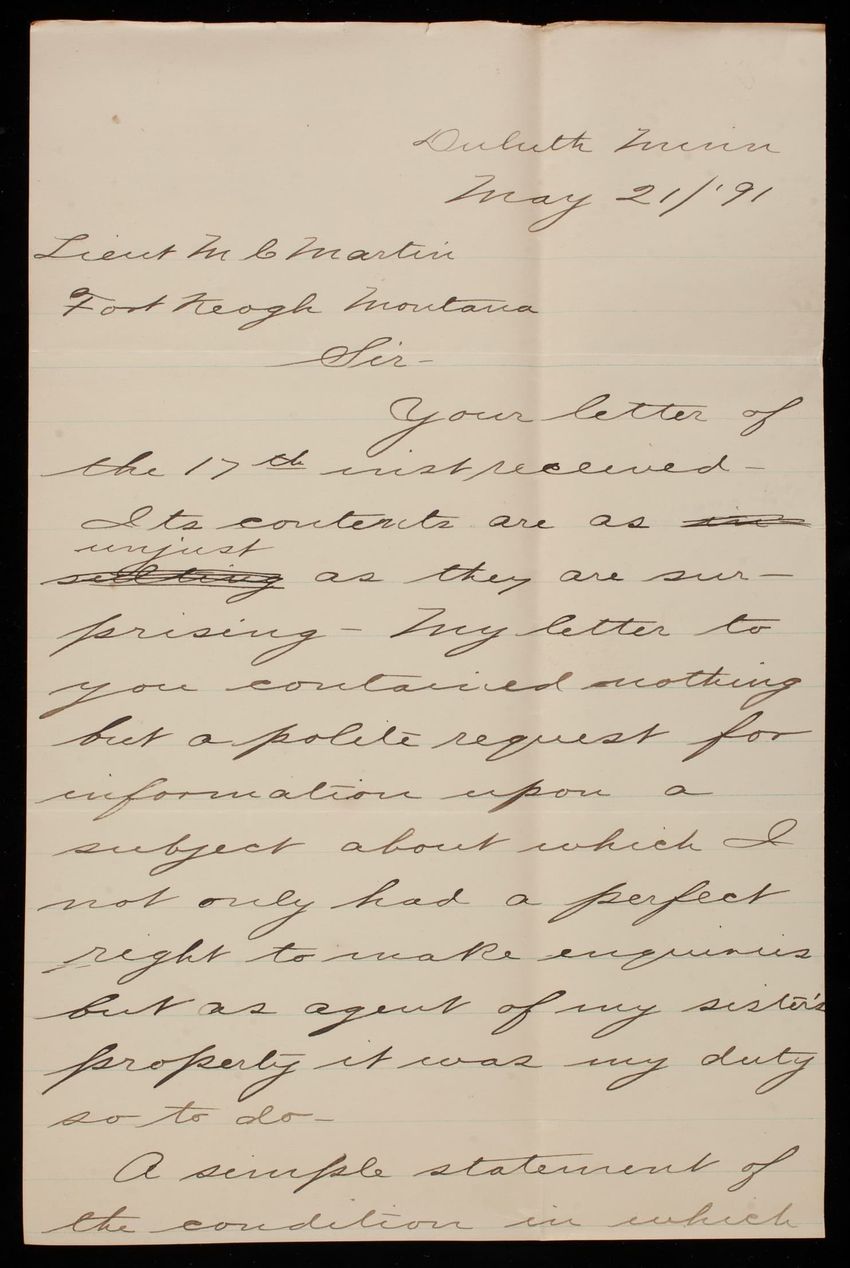 Duluth Minn
May 21/'91
Lieut M C Martin
Fort Keogh Montana
Sir-
Your letter of
the 17th inst received-
Its contents are as in
unjust
sulting as they are sur-
prising- My letter to
you contained nothing
but a polite request for
information upon a
subject about which I
not only had a perfect
right to make enquiries
but as agent of my sister's
property it was my duty
so to do-
A simple statement of
the condition in which